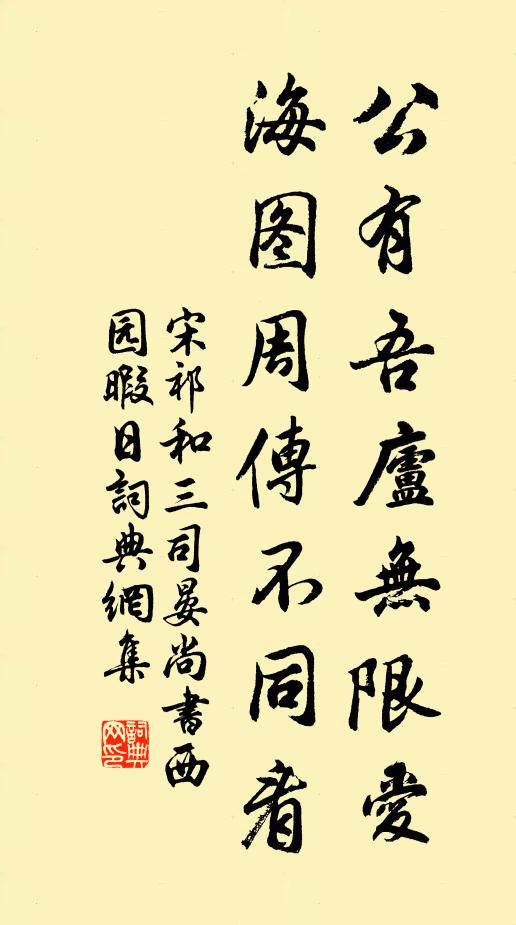 公有吾廬無限愛
海图周傳不同看
宋祁和三司晏尚書西
园暇日詞典網集
詞典网印